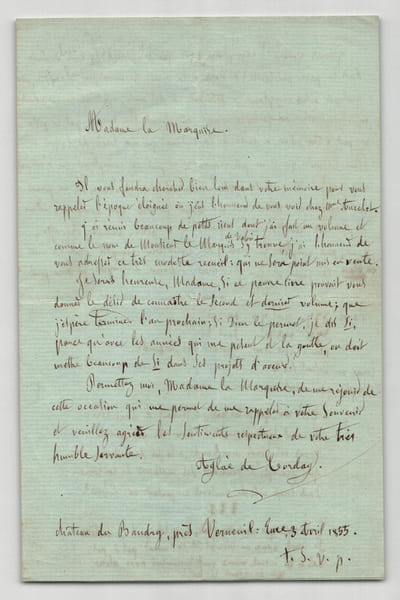 Madame la Marquise.
Il vous faudra chercher bien loin dans votre mémoire pour vous
rappeler l'époque éloignée où j'eus l'honneur de vous voir chez Mme Ancelot.
j'ai réuni beaucoup de petits riens dont j'ai fait un volume et
comme le nom de Monsieur le Marquis s'y trouve, j'ai l'honneur de
vous adresser ce très modeste recueil: qui ne sera point mis en vente.
Je serais heureuse, Madame, si ce pauvre livre pouvait vous
donner le désir de connaître le second et dernier volume; que
j'espère terminer l'an prochain; si Dieu le permet, je dis si,
parce qu'avec les années qui me pèsent et la goutte, on doit
mettre beaucoup de si dans ses projets d'avenir.
Permettez moi, Madame la Marquise, de me réjouir de
cette occasion qui me permet de me rappeler à votre souvenir
et veuillez agréer les sentiments respectueux de votre très
humble servante.
Aglaé de Corday.
château des Baudry, près Verneuil: Eure, 3 Avril 1855.
T. S. V. p.